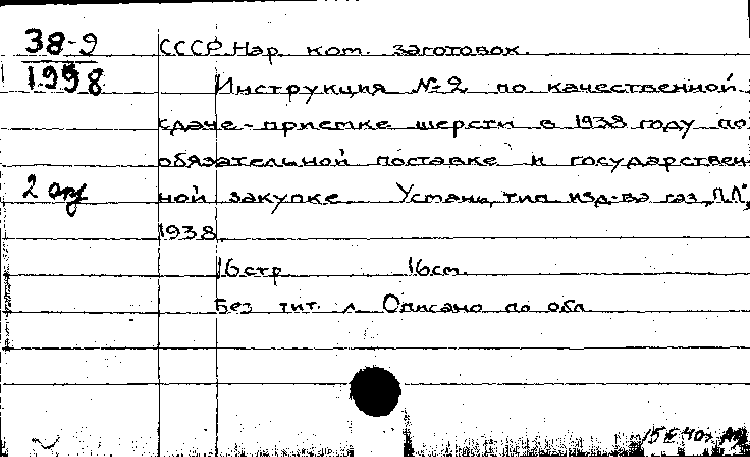 38-9
1998
СССР. Нар. ком. заготовок.
Инструкция № 2 по качественной
сдаче-приемке шерсти в 1938 году по
обязательной поставке и государствен-
2 экз
ной закупке. Устань, тип. изд-ва газ. „Л.Л",
1938.
16 стр. 16 см.
Без тит. л. Описано по обл.